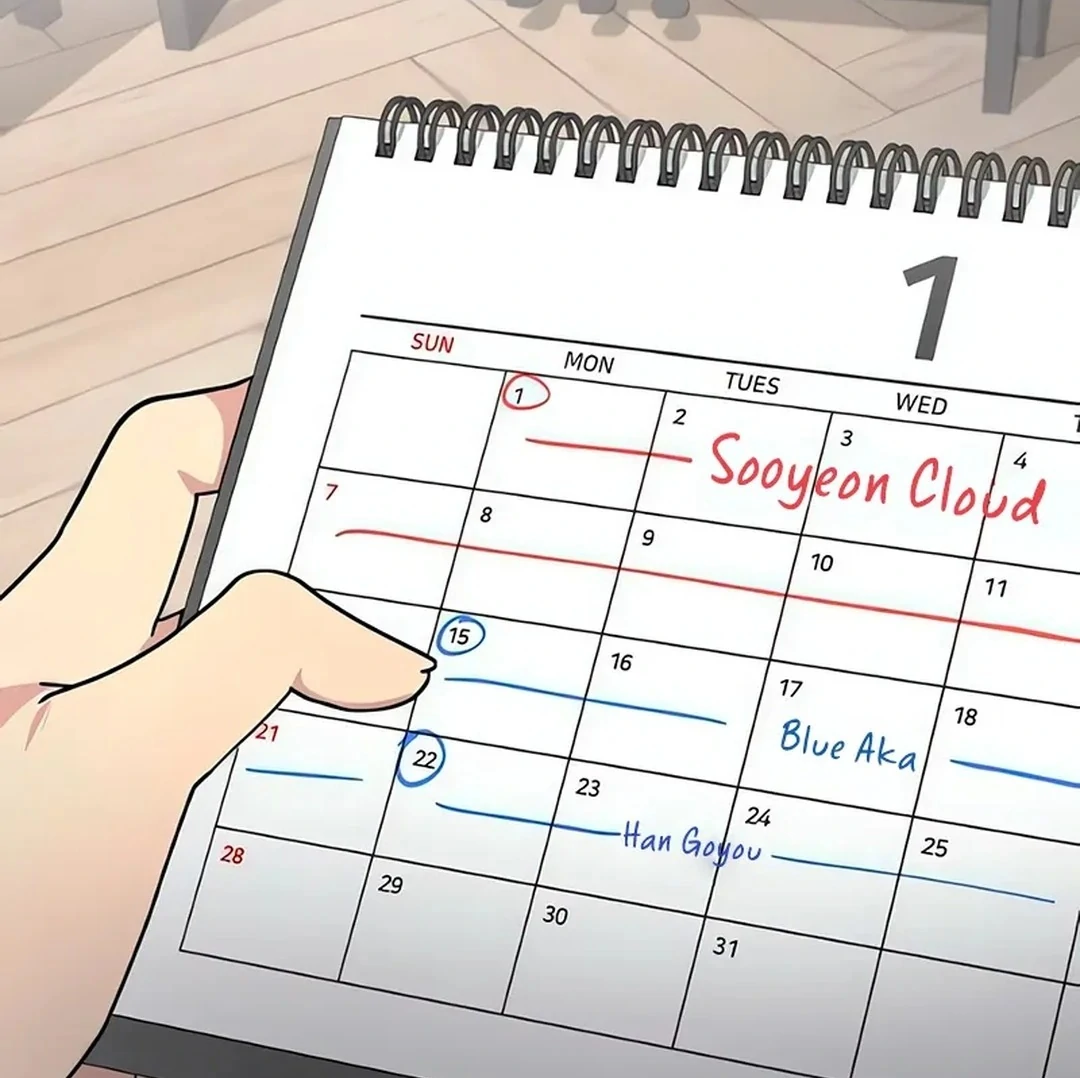 1
SUN MON TUES WED
1 2 3 4
Sooyeon Cloud
7 8 9 10 11
15 16 17 18
Blue Aka
21 22 23 24 25
Han Goyou
28 29 30 31